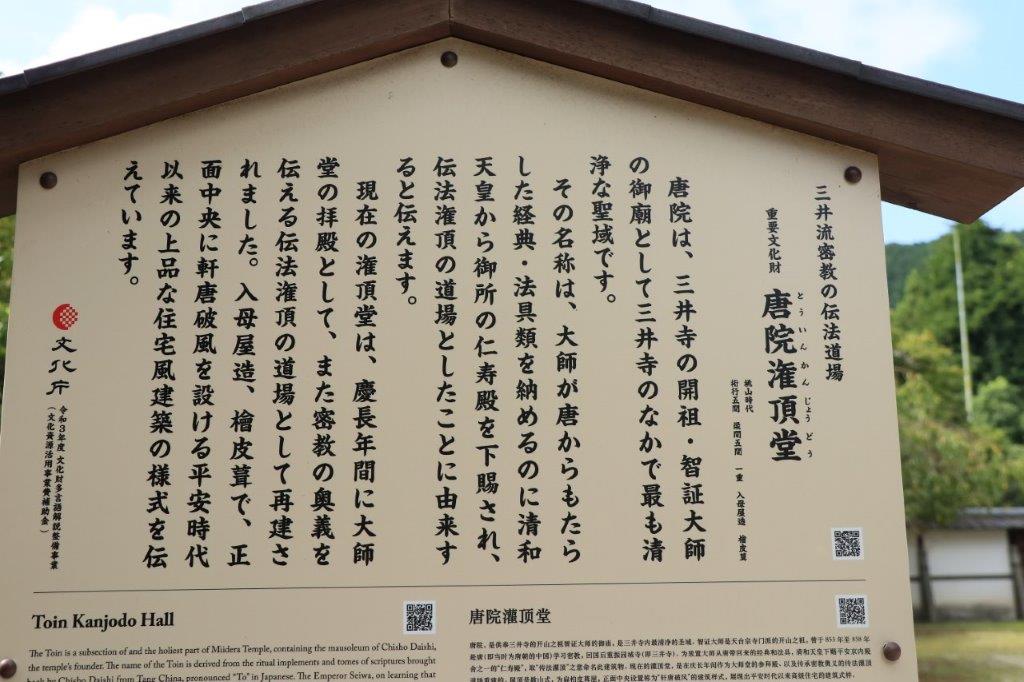 三井流密教の伝法道場
重要文化財
唐院灌頂堂
とういんかんじょうどう
桃山時代
桁行五間 梁間五間 一重 入母屋造 檜皮葺
唐院は、三井寺の開祖・智証大師
の御廟として三井寺のなかで最も清
浄な聖域です。
その名称は、大師が唐からもたら
した経典・法具類を納めるのに清和
天皇から御所の仁寿殿を下賜され、
伝法灌頂の道場としたことに由来す
ると伝えます。
現在の灌頂堂は、慶長年間に大師
堂の拝殿として、また密教の奥義を
伝える伝法灌頂の道場として再建さ
れました。入母屋造、檜皮葺で、正
面中央に軒唐破風を設ける平安時代
以来の上品な住宅風建築の様式を伝
えています。
文化庁
令和3年度 文化財多言語解説整備事業
(文化資源活用事業費補助金)
Toin Kanjodo Hall
The Toin is a subsection of and the holiest part of Miidera Temple, containing the mausoleum of Chisho Daishi,
the temple's founder. The name of the Toin is derived from the ritual implements and tomes of scriptures brought
back by Chisho Daishi from Tang China, pronounced "To" in Japanese. The Emperor Seiwa, on learning that
唐院灌顶堂
唐院，是供奉三井寺的开山之祖智证大师的御庙，是三井寺内最清净的圣域。智证大师是天台宗寺门派的开山之祖，曾于853年至858年